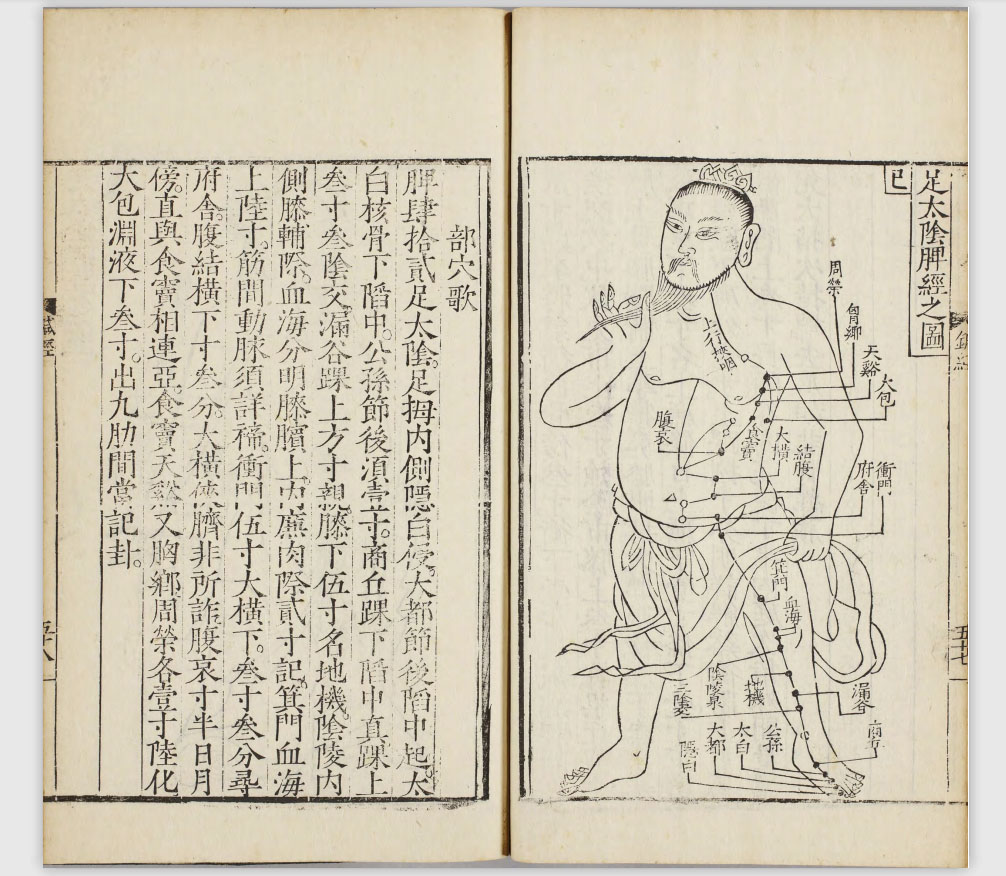 足太陰脾經之圖
巳
周榮
胷鄉
天谿
大包
上行挾咽
腹哀
食竇
大橫
結腹
衝門
府舍
箕門
血海
陰陵泉
地機
三陰交
漏谷
商丘
公孫
太白
大都
隱白
五十七
部穴歌
脾肆拾貳足太陰足拇內側隱白侵大都節後陷中起太
白核骨下陷中公孫節後須壹寸商丘踝下陷中真踝上
叁寸叁陰交漏谷踝上方寸親膝下伍寸名地機陰陵內
側膝輔際血海分明膝臏上內廉肉際貳寸記箕門血海
上陸寸筋間動脉須詳禘衝門伍寸大橫下叁寸叁分尋
府舍腹結橫下寸叁分大橫俠臍非所詐腹哀寸半日月
傍直與食竇相連亞食竇天谿又胷鄉周榮各壹寸陸化
大包淵液下叁寸出九肋間當記封
五十八